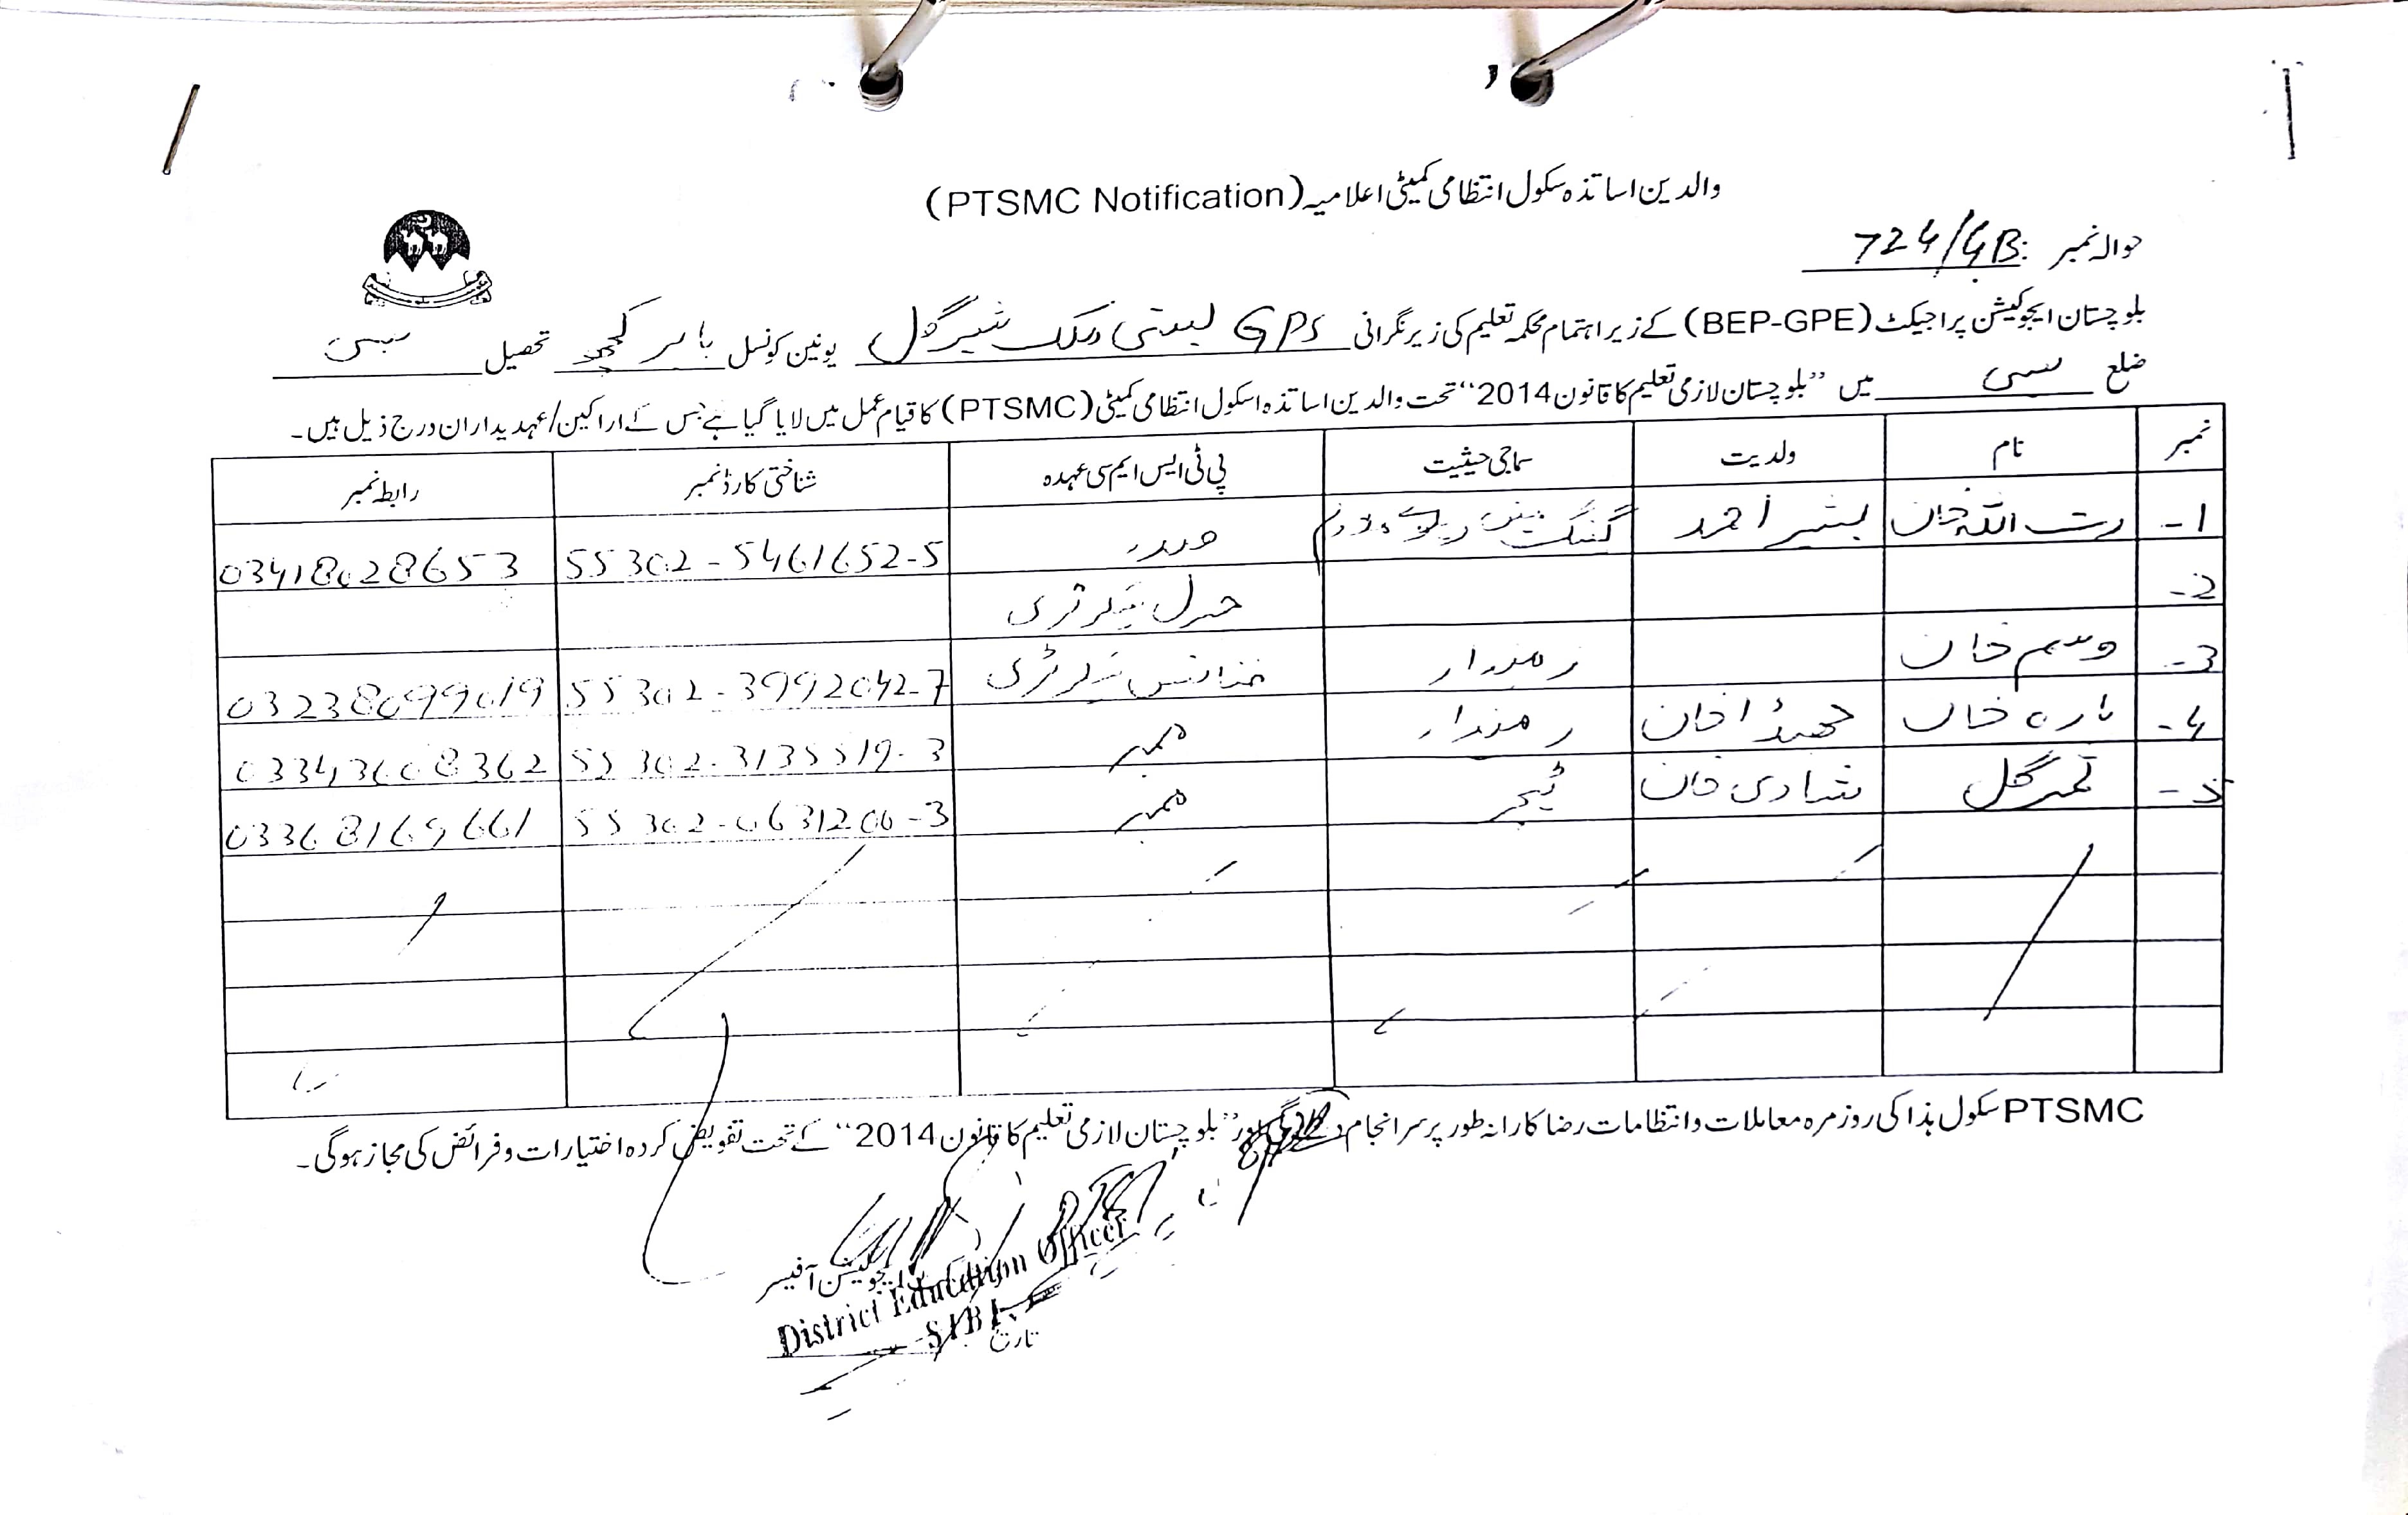 والدین اساتذہ سکول انتظامی کمیٹی اعلامیہ (PTSMC Notification)
حوالہ نمبر: 724/GB
بلوچستان ایجوکیشن پراجیکٹ (BEP-GPE) کے زیر اہتمام محکمہ تعلیم کی زیر نگرانی GPS بستی ملک شیر گل یونین کونسل تحصیل سبی
ضلع سبی میں "بلوچستان لازمی تعلیم کا قانون 2014" تحت والدین اساتذہ اسکول انتظامی کمیٹی (PTSMC) کا قیام عمل میں لایا گیا ہے جس کے اراکین/عہدیداران درج ذیل ہیں۔
نمبر نام ولدیت سماجی حیثیت پی ٹی ایس ایم سی عہدہ شناختی کارڈ نمبر رابطہ نمبر
1- اللہ خان بشیر احمد صدر 55302-5461652-5 03418028653
2- جنرل سیکرٹری
3- وسیم خان زمیندار فنانس سیکرٹری 55302-3992042-7 03238099019
4- تارہ خان خان زمیندار ممبر 55302-3135519-3 03343608362
5- قمر گل شادی خان ٹیچر ممبر 55302-0631200-3 03368169661
PTSMC سکول ہذا کی روزمرہ معاملات و انتظامات رضاکارانہ طور پر سرانجام دے گی اور "بلوچستان لازمی تعلیم کا قانون 2014" کے تحت تفویض کردہ اختیارات و فرائض کی مجاز ہوگی۔
ایجوکیشن آفیسر
District Education Officer
SIBI
تاریخ